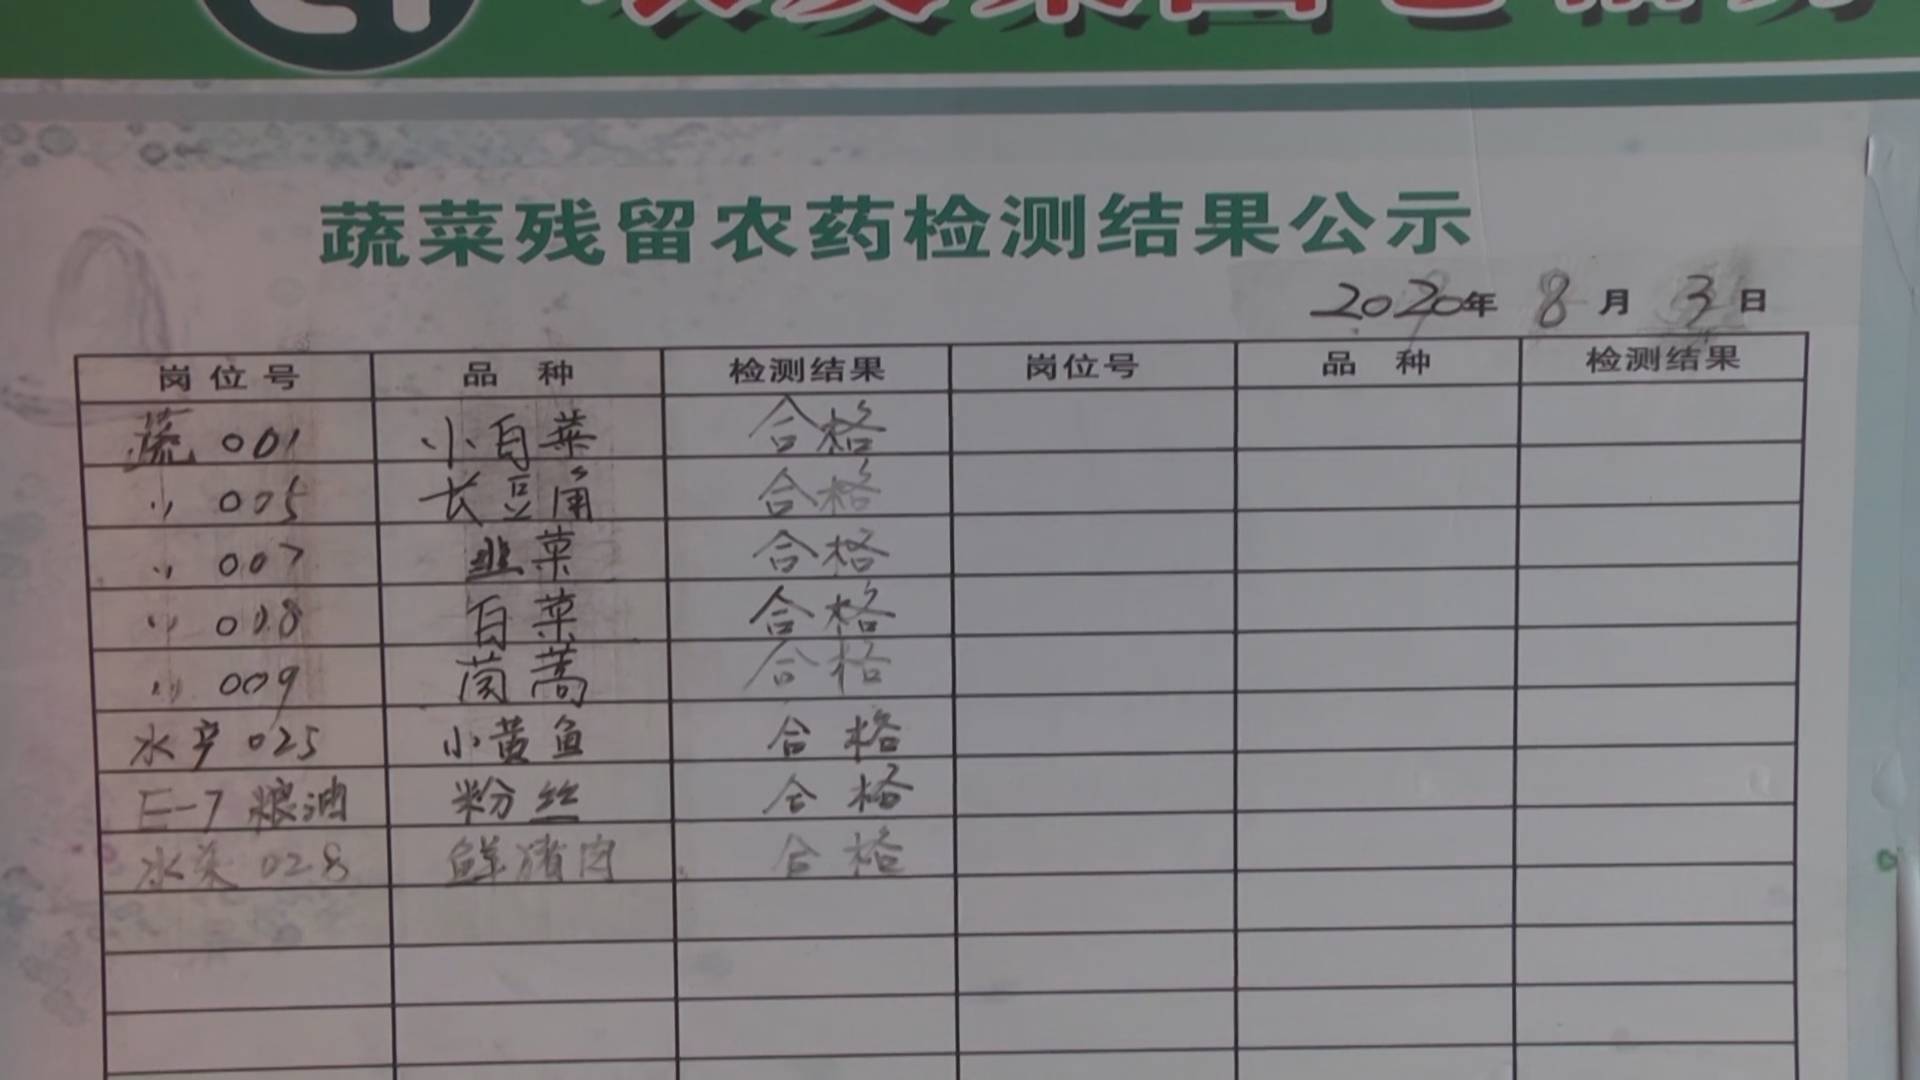 蔬菜残留农药检测结果公示
2020年 8月 3日
岗位号 品种 检测结果 岗位号 品种 检测结果
蔬 001 小白菜 合格
〃 005 长豆角 合格
〃 007 韭菜 合格
〃 008 白菜 合格
〃 009 茼蒿 合格
水产 025 小黄鱼 合格
E-7 粮油 粉丝 合格
028 鲜猪肉 合格